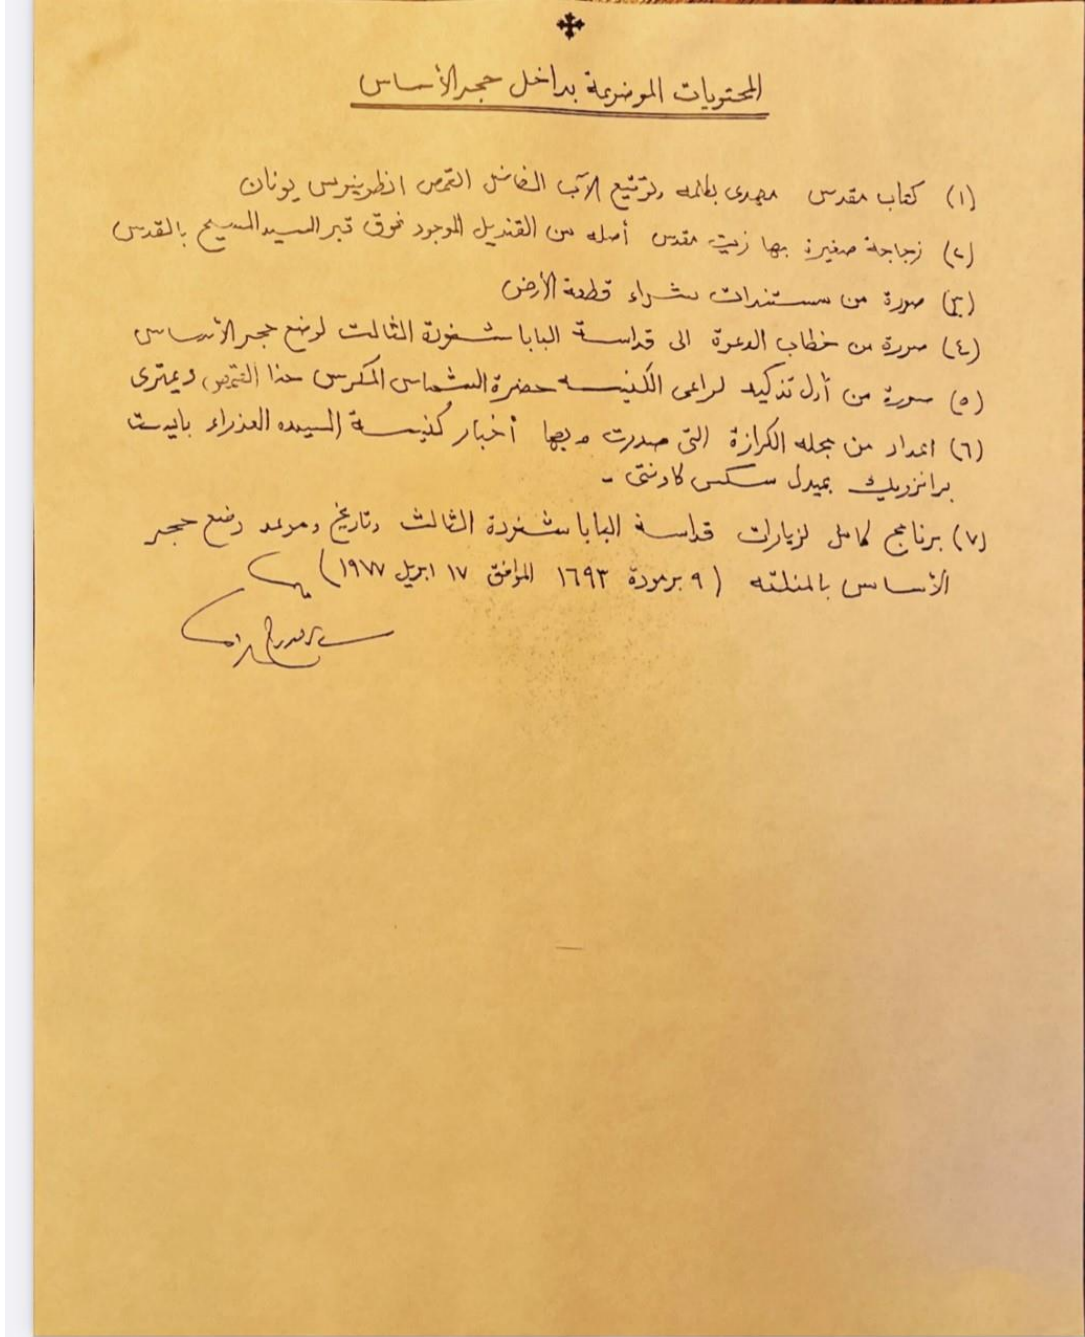 المحتويات الموضوعة بداخل حجر الأساس
(١) كتاب مقدس مهدى بكلمه وتوقيع الآب الفاضل القمص انطونيوس يونان
(٢) زجاجة صغيرة بها زيت مقدس أصله من القنديل الموجود فوق قبر السيد المسيح بالقدس
(٣) صورة من مستندات شراء قطعة الأرض
(٤) صورة من خطاب الدعوة الى قداسة البابا شنودة الثالث لوضع حجر الأساس
(٥) صورة من أول تذكيه لراعى الكنيسه حضرة الشماس المكرس حنا القمص ديمترى
(٦) اعداد من مجله الكرازة التى صدرت وبها أخبار كنيسة السيده العذراء بايست
برانزويك بميدل سكس كاونتى -
(٧) برنامج كامل لزيارات قداسة البابا شنودة الثالث وتاريخ وموعد وضع حجر
الأساس بالمنطقه (٩ برمودة ١٦٩٣ الموافق ١٧ ابريل ١٩٧٧)